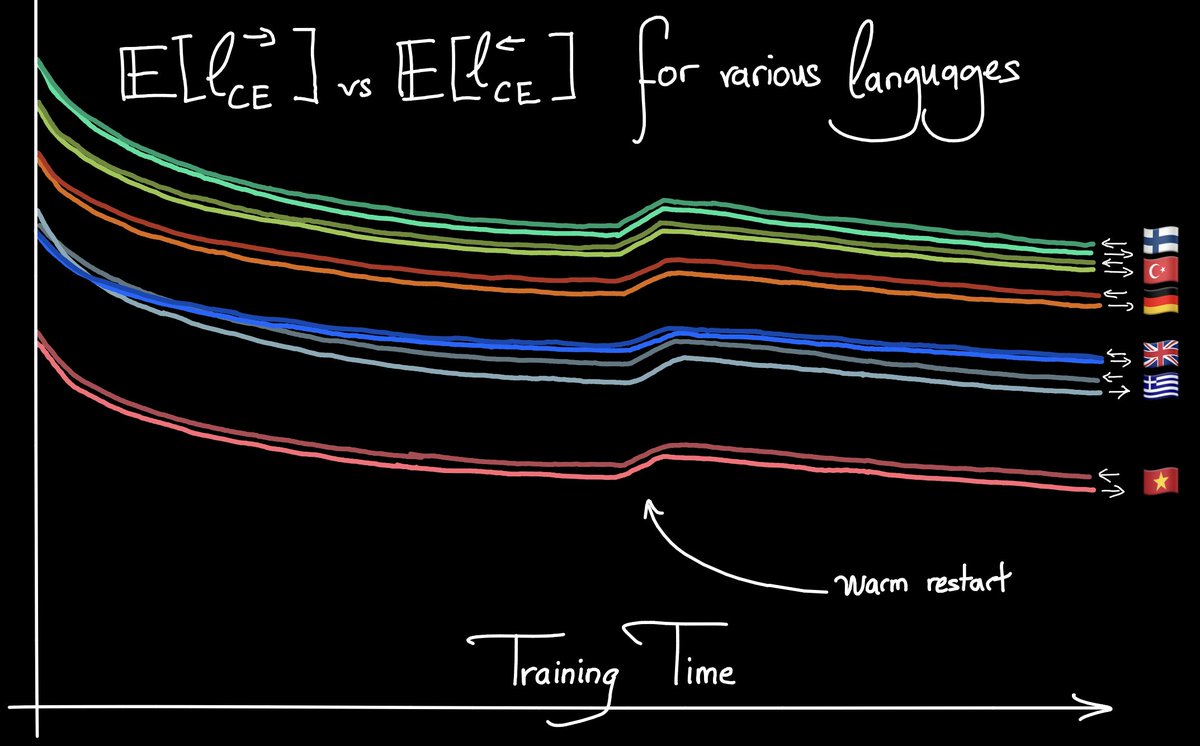 𝔼[ℓ→CE] vs 𝔼[ℓ←CE] for various languages
← →
← →
← →
← →
← →
← →
warm restart
Training Time